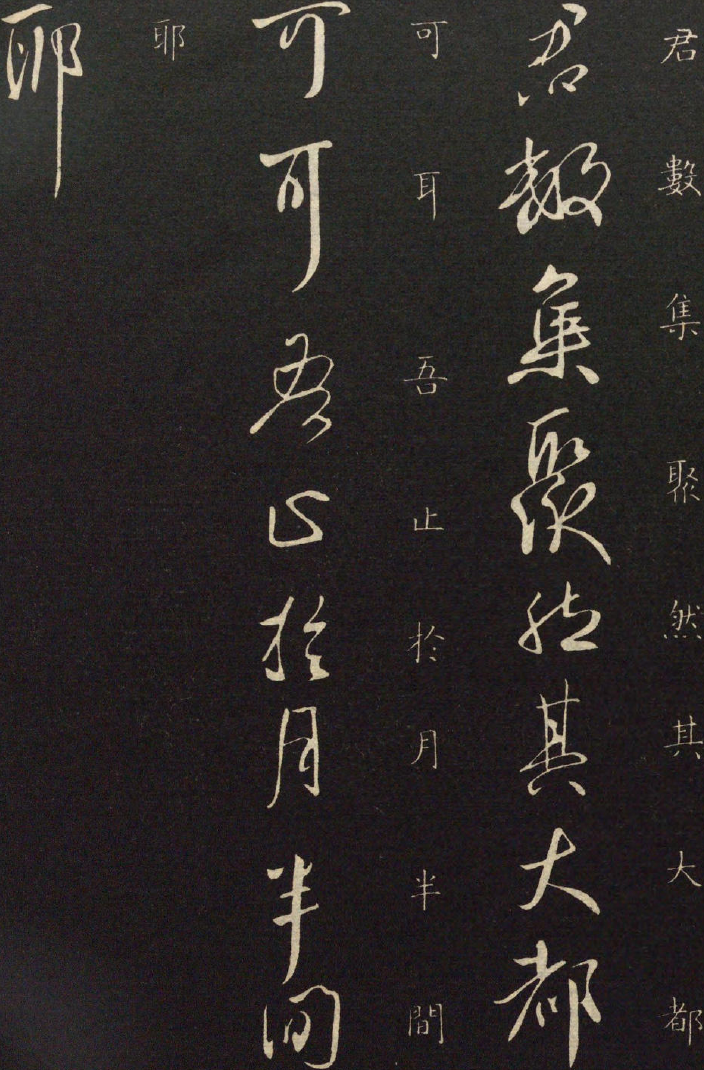 君數集聚然其大都
君數集聚然其大都
可耳吾止於月半間
可可吾止於月半間
耶
耶